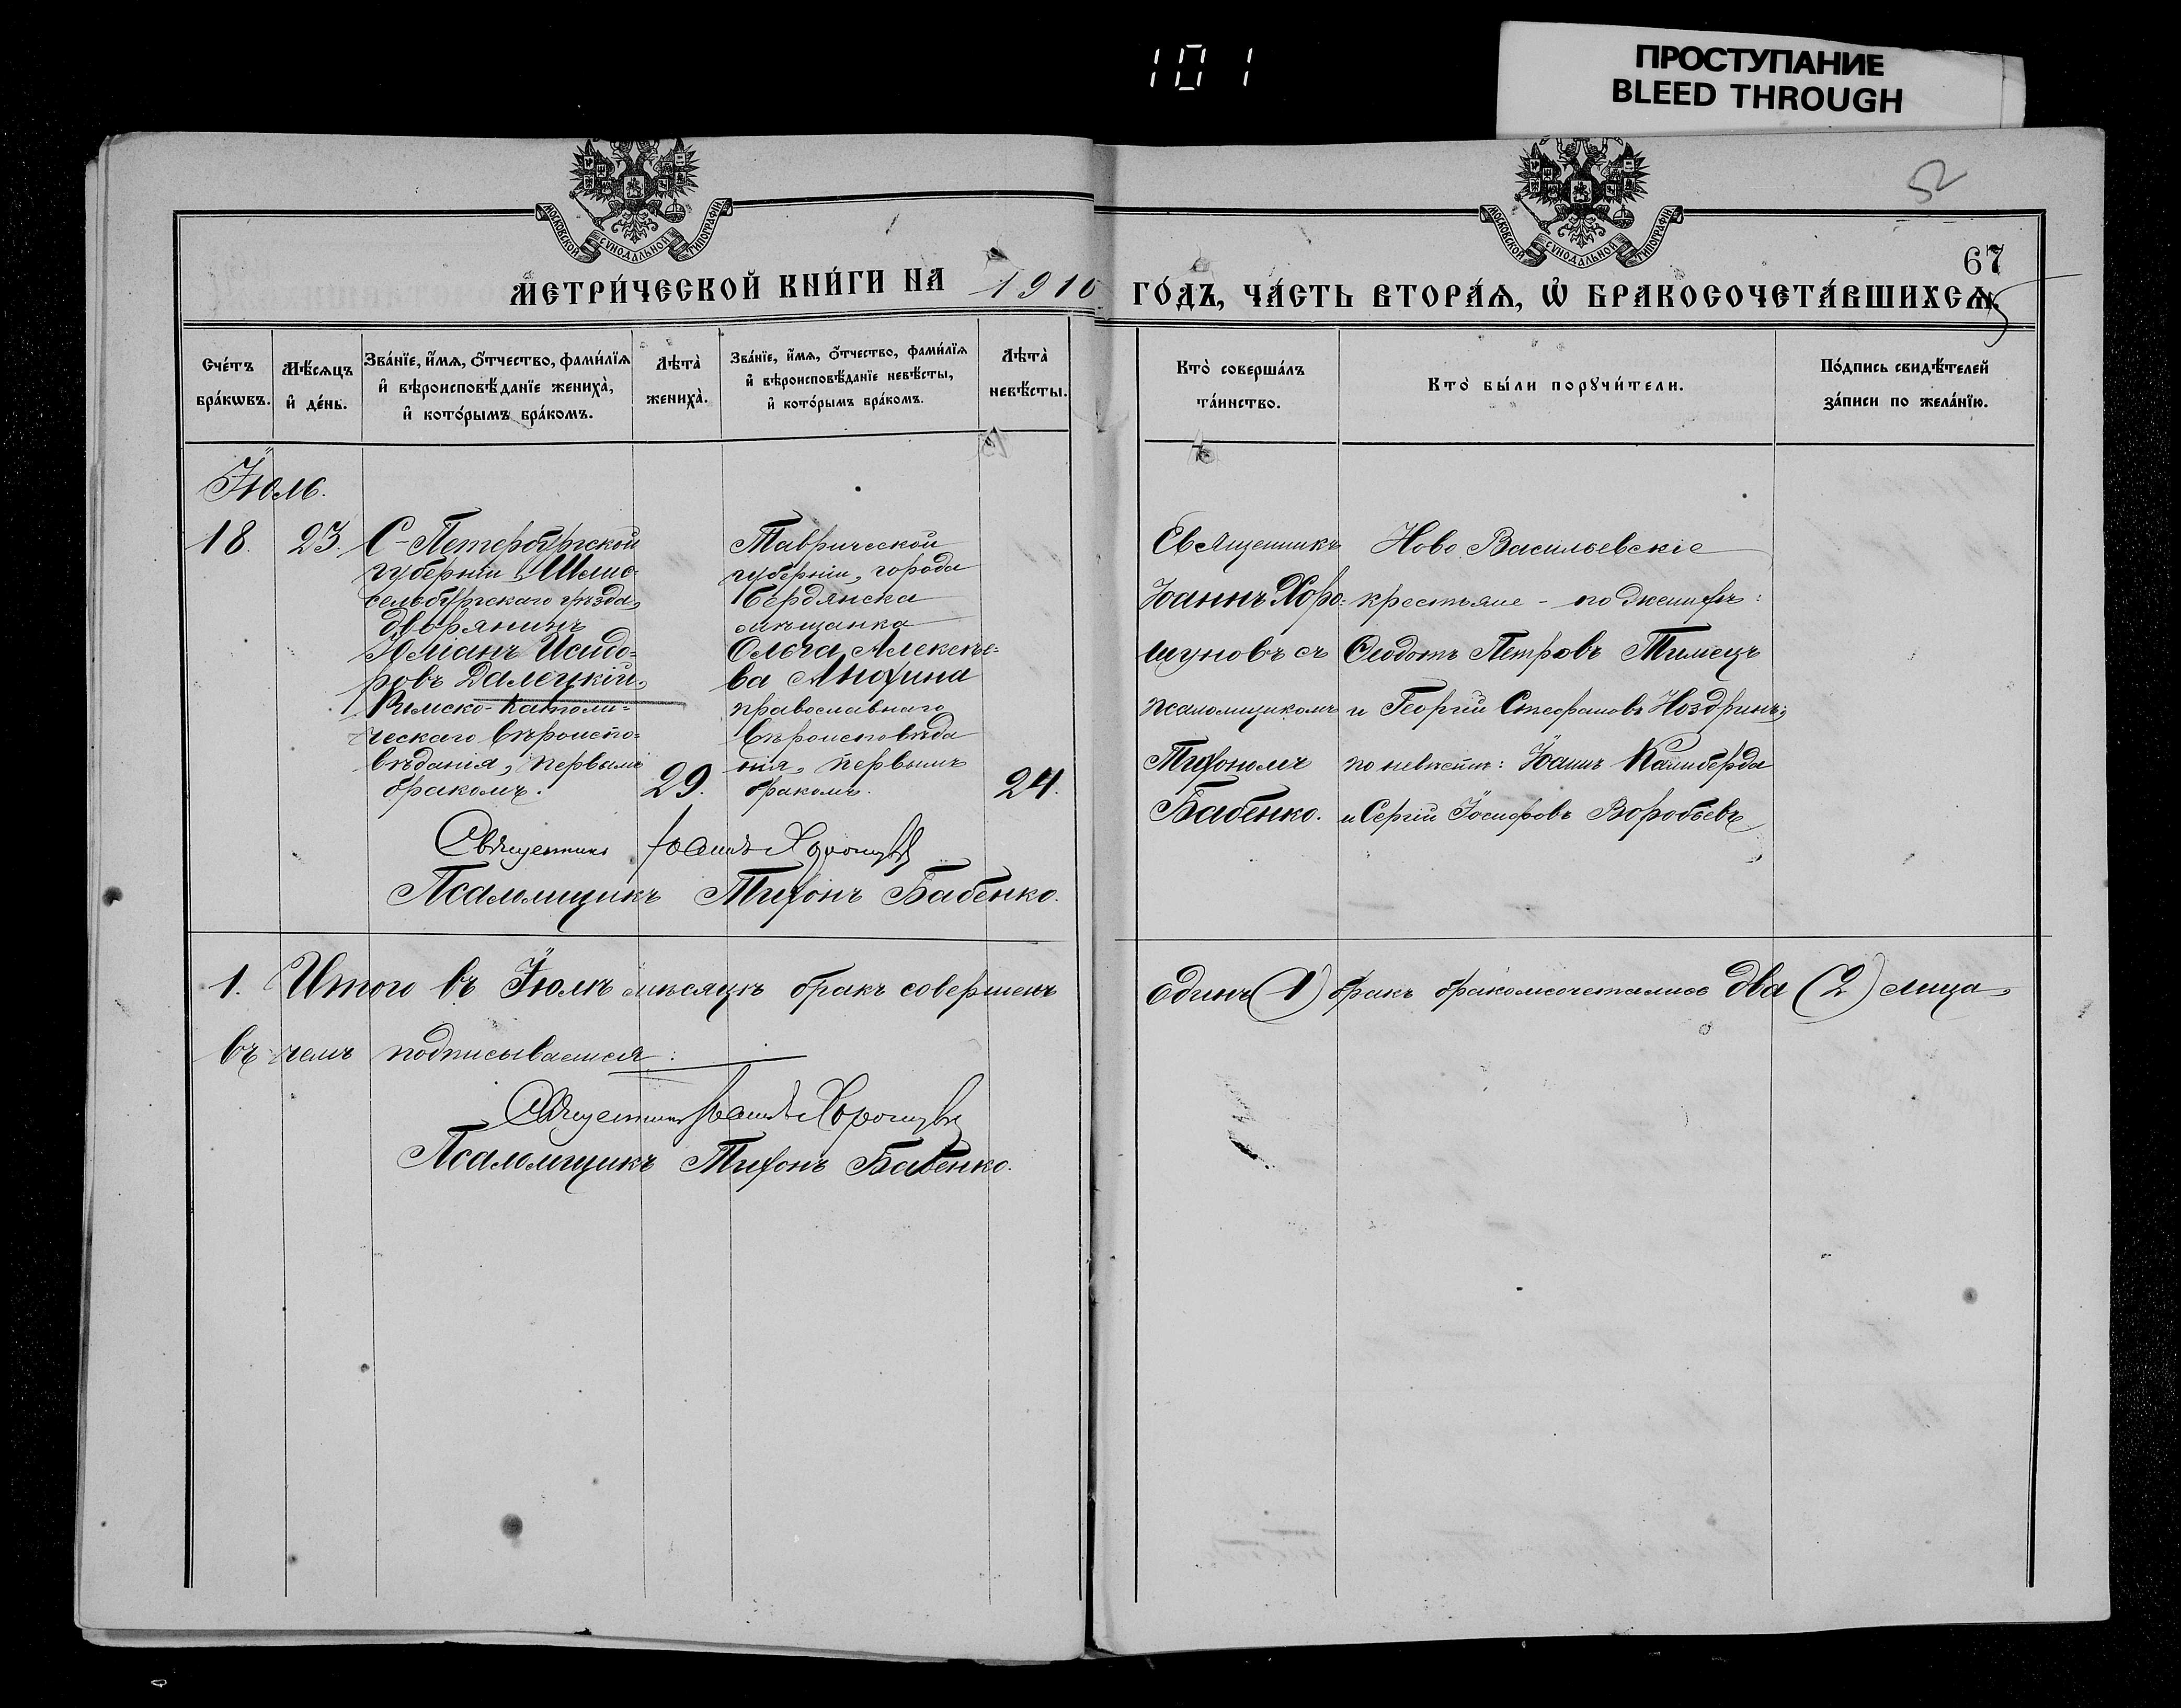 101
ПРОСТУПАНИЕ
BLEED THROUGH
52
67
МОСКОВСКОЙ СѴНОДАЛЬНОЙ ТИПОГРАФІИ
МОСКОВСКОЙ СѴНОДАЛЬНОЙ ТИПОГРАФІИ
МЕТРИ́ЧЕСКОЙ КНИ́ГИ НА 1910
ГО́ДЪ, ЧА́СТЬ ВТОРА́Ѧ, Ѽ БРАКОСОЧЕТА́ВШИХСѦ.
Сче́тъ бра́кѡвъ.
Мѣ́сѧцъ и҆ де́нь.
Зва́нїе, и҆́мѧ, ѻ҆́тчество, фами́лїѧ
и҆ вѣроисповѣ́данїе жениха̀,
и҆ кото́рымъ бра́комъ.
Лѣта̀ жениха̀.
Зва́нїе, и҆́мѧ, ѻ҆́тчество, фами́лїѧ
и҆ вѣроисповѣ́данїе невѣ́сты,
и҆ кото́рымъ бра́комъ.
Лѣта̀ невѣ́сты.
Кто̀ соверша́лъ та́инство.
Кто̀ бы́ли порꙋчи́тели.
По́дпись свидѣ́телей за́писи по жела́нїю.
Іюль.
18. 23.
С-Петербургской
губерніи, Шлис-
сельбургскаго уѣзда,
дворянинъ
Юліанъ Исидо=
ровъ Далецкій,
Римско-Католи=
ческаго вѣроиспо=
вѣданія, первымъ
бракомъ.
29.
Таврической
губерніи, города
Бердянска
мѣщанка
Ольга Алексѣе=
ва Анохина
православнаго
вѣроисповѣда
нія, первымъ
бракомъ.
24.
Священникъ
Іоаннъ Хоро=
шуновъ съ
псаломщикомъ
Тихономъ
Бабенко.
Ново Васильевскіе
крестьяне - по женихѣ:
Ѳеодотъ Петровъ Тимецъ
и Георгій Стефановъ Ноздринъ;
по невѣстѣ: Іоаннъ Калиберда
и Сергій Іосифовъ Воробьевъ
Священникъ Іоаннъ Хорошунов
Псаломщикъ Тихонъ Бабенко.
1. Итого въ Іюлѣ мѣсяцѣ бракъ совершенъ
Единъ (1) бракъ бракомсочетались два (2) лица,
въ чемъ подписываемся:
Священникъ Іоаннъ Хорошунов
Псаломщикъ Тихонъ Бабенко.